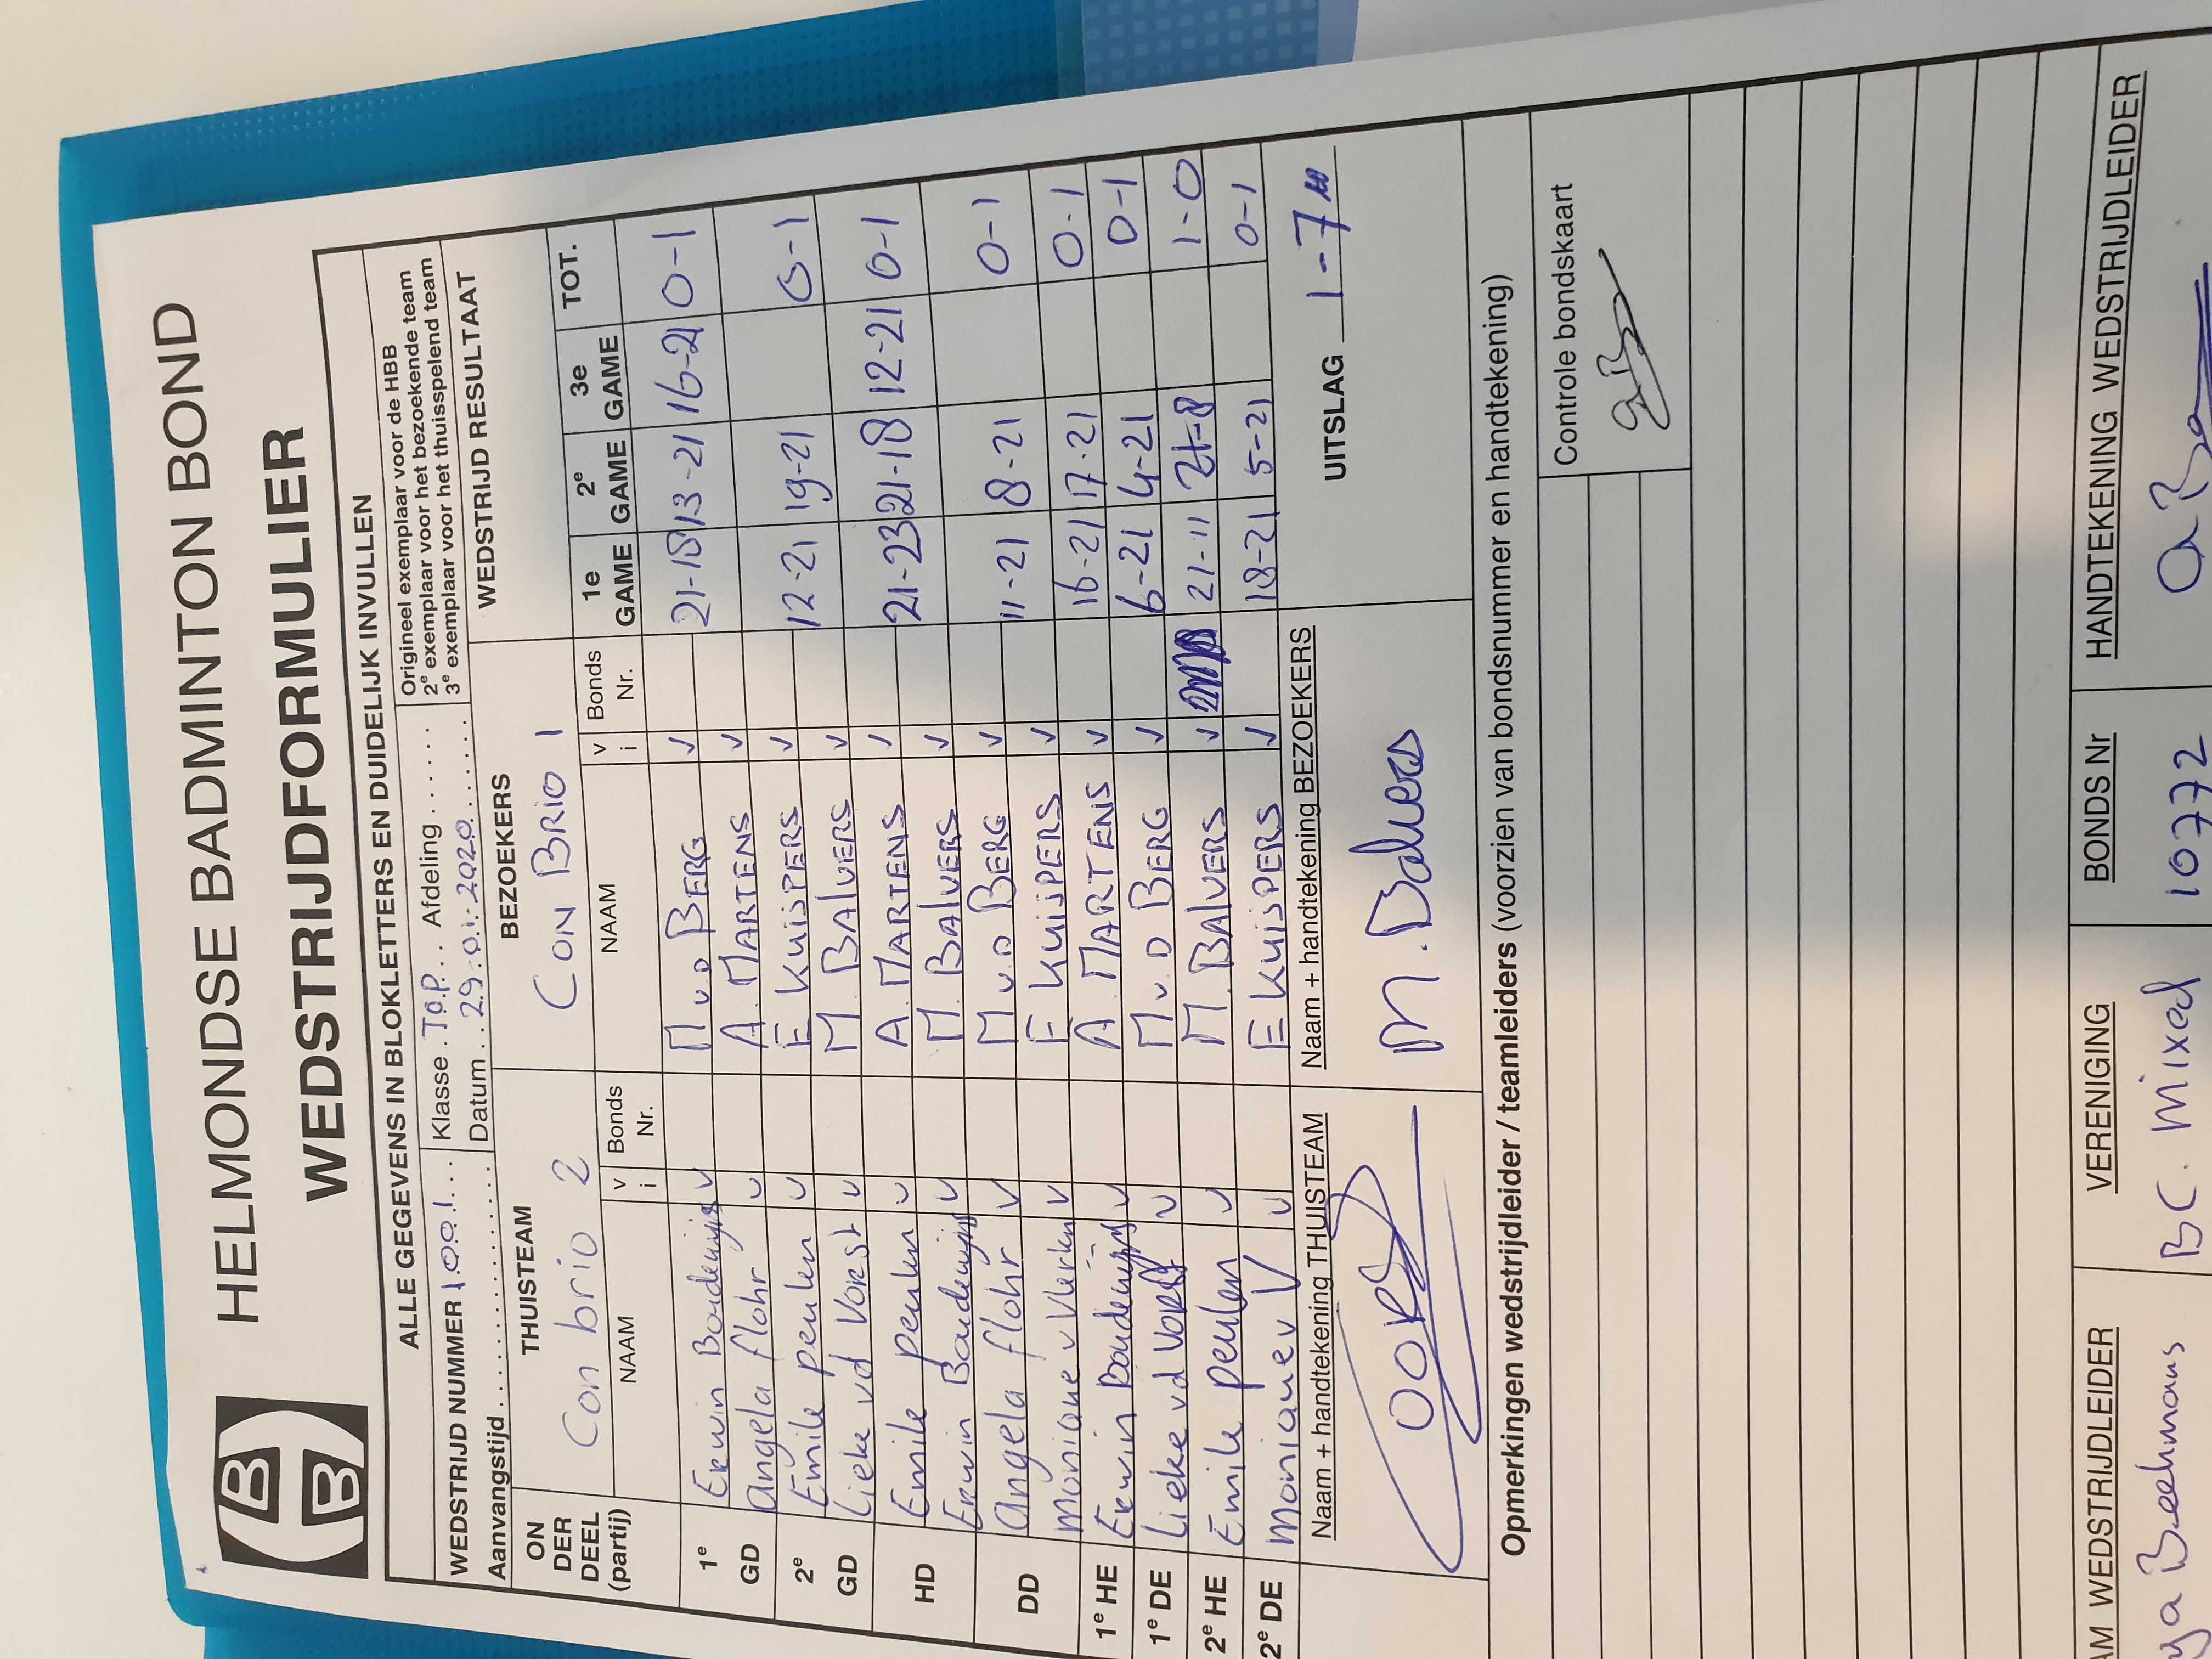 HELMONDSE BADMINTON BOND
WEDSTRIJDFORMULIER
ALLE GEGEVENS IN BLOKLETTERS EN DUIDELIJK INVULLEN
WEDSTRIJD NUMMER 1001 Klasse TOP Afdeling
Aanvangstijd Datum 29-01-2020
Origineel exemplaar voor de HBB
2e exemplaar voor het bezoekende team
3e exemplaar voor het thuisspelend team
THUISTEAM BEZOEKERS WEDSTRIJD RESULTAAT
Con brio 2 CON BRIO 1
ON DER DEEL (partij) NAAM vi Bonds Nr. NAAM vi Bonds Nr. 1e GAME 2e GAME 3e GAME TOT.
1e GD Erwin Boudewijns v M v.D BERG v 21-18 13-21 16-21 0-1
Angela flohr v A. MARTENS v
2e GD Emile peulen v E KUIJSPERS v 12-21 19-21 0-1
Lieke vd Vorst v M. BALVERS v
HD Emile peulen v A. MARTENS v 21-23 21-18 12-21 0-1
Erwin Boudewijns v M. BALVERS v
DD Angela flohr v M v.D BERG v 11-21 8-21 0-1
Monique v v E KUIJSPERS v 16-21 17-21 0-1
1e HE Erwin Boudewijns v A. MARTENS v 6-21 4-21 0-1
1e DE Lieke vd Vorst v M v D BERG v 21-11 21-8 1-0
2e HE Emile peulen v M. BALVERS v 18-21 5-21 0-1
2e DE Monique v V v E KUIJSPERS v
Naam + handtekening THUISTEAM Naam + handtekening BEZOEKERS UITSLAG 1-7
M. Balvers
Opmerkingen wedstrijdleider / teamleiders (voorzien van bondsnummer en handtekening)
Controle bondskaart
AM WEDSTRIJDLEIDER VERENIGING BONDS Nr HANDTEKENING WEDSTRIJDLEIDER
BC. Mixed 10772